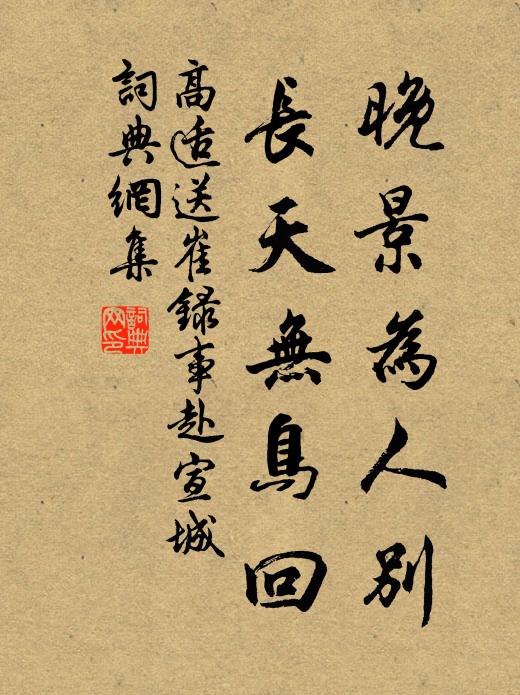 晚景為人別
長天無鳥回
高適送崔錄事赴宣城
詞典網集
詞典网印